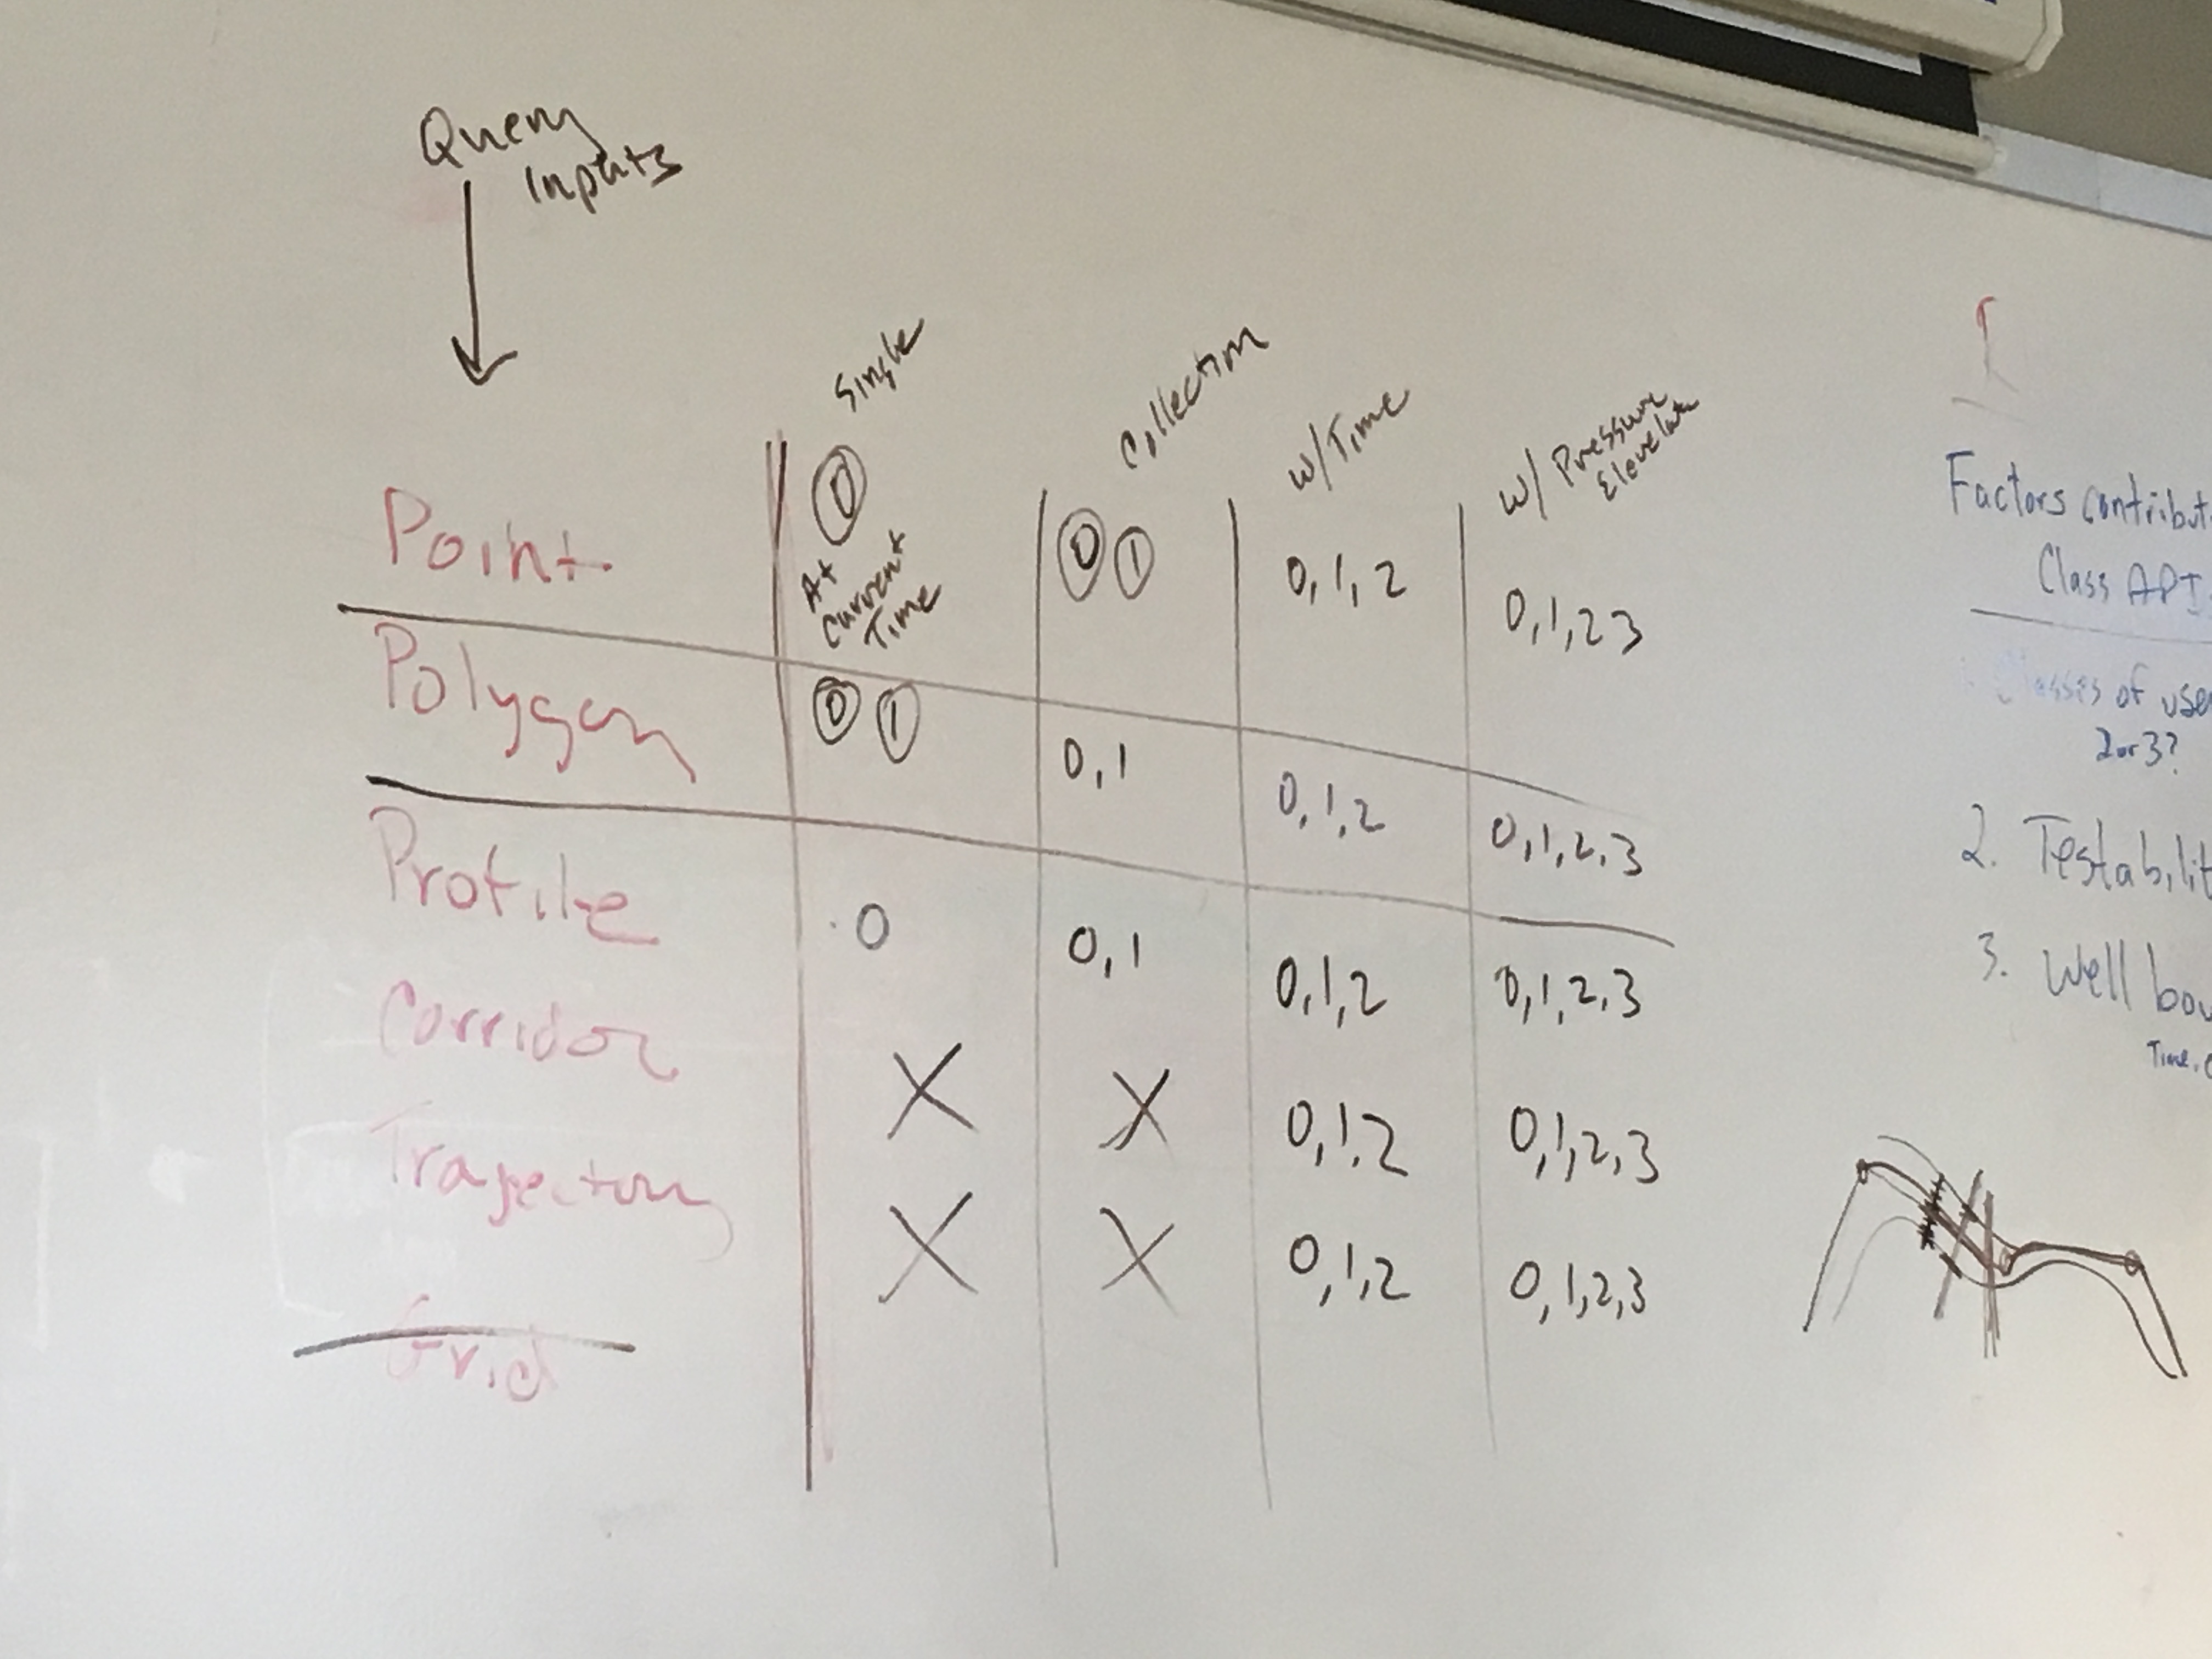 Query
Inputs
Single
Collection
w/Time
w/ Pressure
Point
0
At
Current
Time
0 1
0,1,2
0,1,2 3
Polygon
0 1
0,1
0,1,2
0,1,2,3
Profile
0
0,1
0,1,2
0,1,2,3
Corridor
X
X
0,1,2
0,1,2,3
Trajectory
X
X
0,1,2
0,1,2,3
Grid
Factors contribut
Class API
Classes of use
2 or 3?
2. Testabilit
3. Well bou
Time,